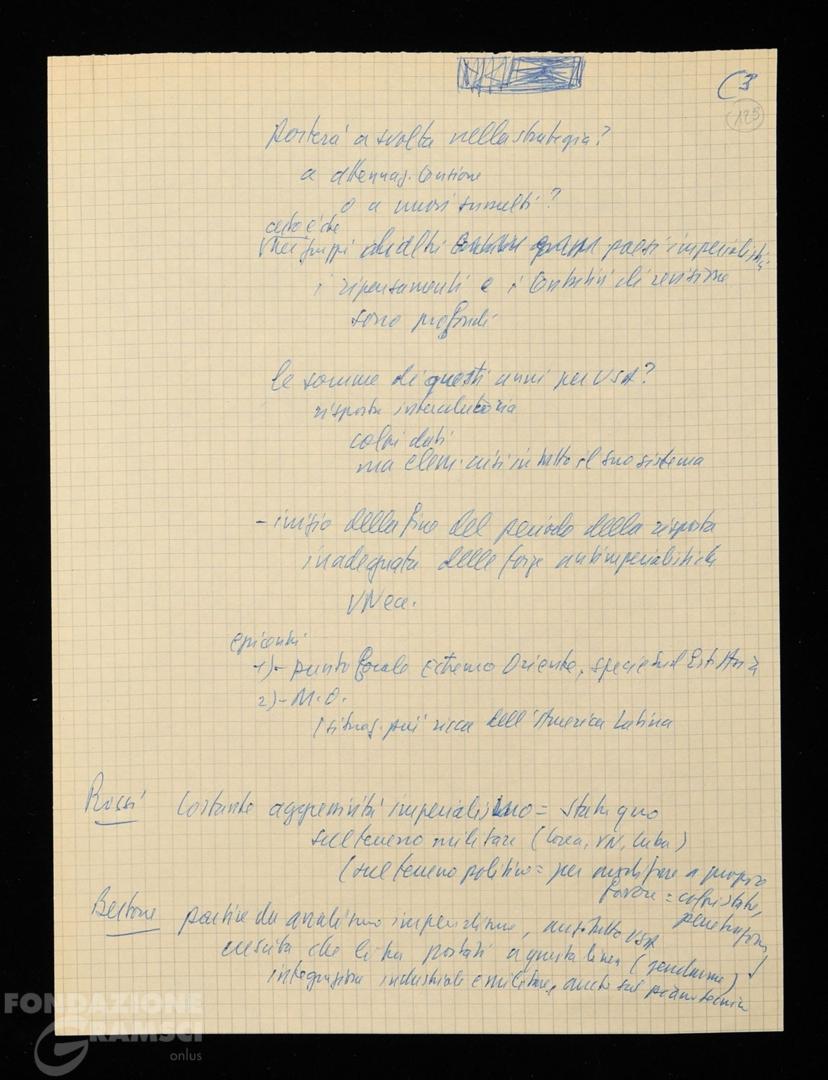 C3
125
porterà a svolta nella strategia?
a attenuaz. tensione
o a nuovi sussulti?
certo è che
nei gruppi di altri paesi imperialisti
i ripensamenti e i tentativi di revisione
sono profondi
le somme di questi anni per USA?
risposta interlocutoria
colpi dati
ma elem. crisi in tutto il suo sistema
- inizio della fine del periodo della risposta
inadeguata delle forze antimperialistiche
VN ecc.
epicentri
1)- punto focale Estremo Oriente, specie Sud Est Asia
2)- M.O.
situaz. più ricca dell'America Latina
Rossi costante aggressività imperialismo = statu quo
sul terreno militare (Corea, VN, Cuba)
(sul terreno politico = per modificare a proprio
favore = colpi stato,
penetrazione
Bertone partire da analisi imperialismo, anzitutto USA
crescita che li ha portati a questa linea (gendarme)
integrazione industriale e militare, anche sul piano tecnico
FONDAZIONE
GRAMSCI
onlus